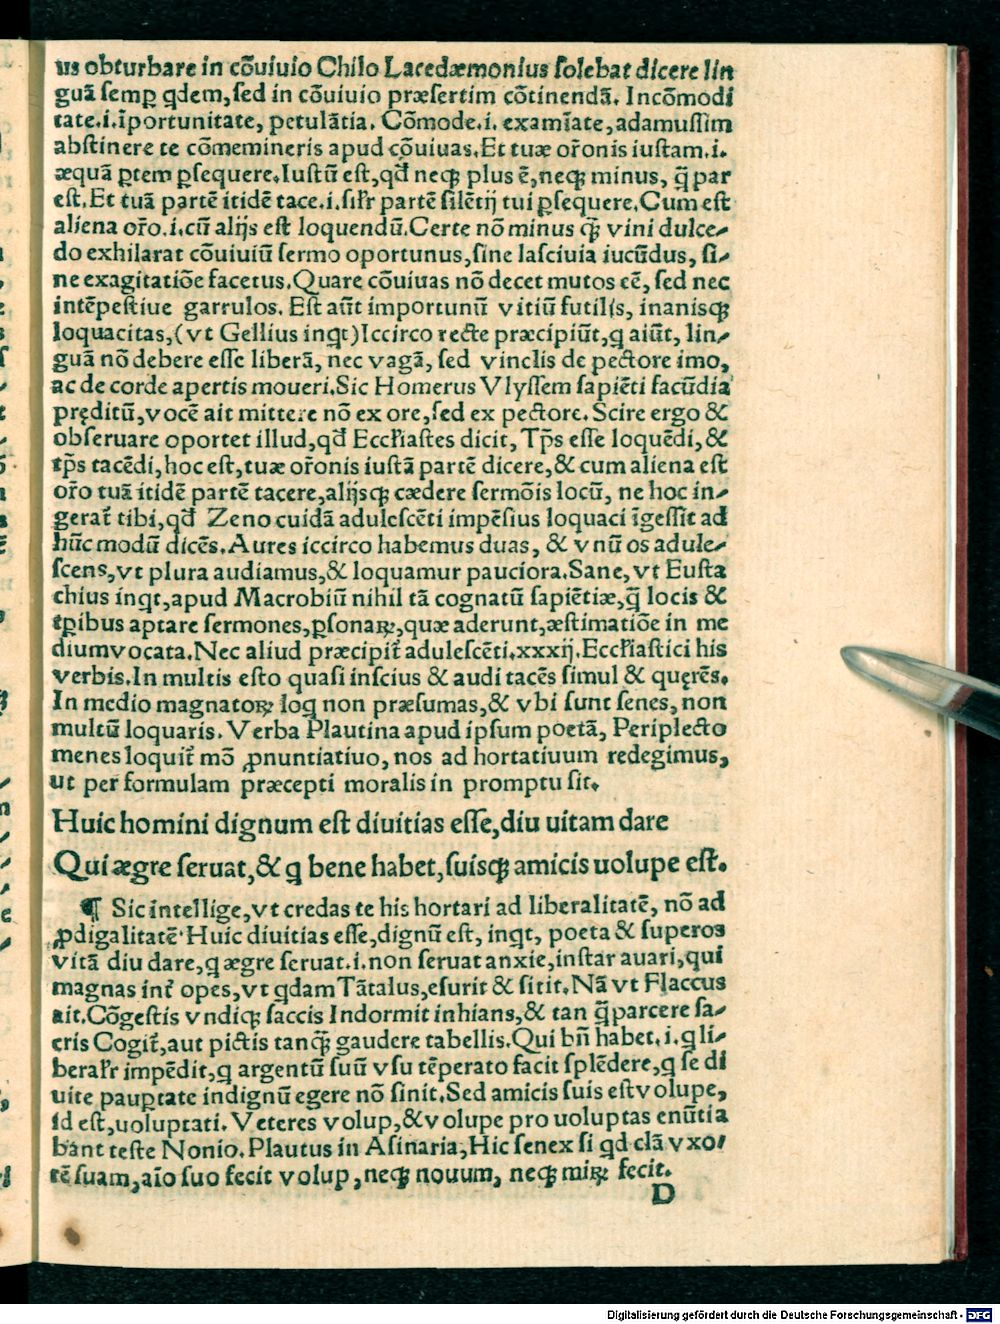 us obturbare in cõuiuio Chilo Lacedæmonius ſolebat dicere lin
guã ſemꝑ qdem, ſed in cõuiuio præſertim cõtinendã. Incõmodi
tate.i.īportunitate, petulãtia. Cõmode.i. examīate, adamuſſim
abſtinere te cõmemineris apud cõuiuas. Et tuæ or̃onis iuſtam.i.
æquã ꝑtem ꝑſequere. Iuſtũ eſt, qđ neqꝫ plus ẽ, neqꝫ minus, q̃ par
eſt. Et tuã partẽ itidẽ tace.i. ſilr̃ partẽ ſilẽtij tui ꝑſequere. Cum eſt
aliena or̃o.i.cũ alijs eſt loquendũ. Certe nõ minus q̃ꝫ vini dulce⸗
do exhilarat cõuiuiũ ſermo oportunus, ſine laſciuia iucũdus, ſi⸗
ne exagitatiõe facetus. Quare cõuiuas nõ decet mutos eẽ, ſed nec
intẽpeſtiue garrulos. Eſt aũt importunũ vitiũ futilis, inanisqꝫ
loquacitas, (vt Gellius inqt) Iccirco recte præcipiũt, q aiũt, lin⸗
guã nõ debere eſſe liberã, nec vagã, ſed vinclis de pectore imo,
ac de corde apertis moueri. Sic Homerus Vlyſſem ſapiẽti facũdia
pręditũ, vocẽ ait mittere nõ ex ore, ſed ex pectore. Scire ergo &
obſeruare oportet illud, qđ Eccl'iaſtes dicit, Tp̃s eſſe loquẽdi, &
tp̃s tacẽdi, hoc eſt, tuæ or̃onis iuſtã partẽ dicere, & cum aliena eſt
or̃o tuã itidẽ partẽ tacere, alijsqꝫ cædere ſermõis locũ, ne hoc in⸗
gerat̃ tibi, qđ Zeno cuidã aduleſcẽti impẽſius loquaci īgeſſit ad
hũc modũ dicẽs. Aures iccirco habemus duas, & vnũ os adule⸗
ſcens, vt plura audiamus, & loquamur pauciora. Sane, vt Euſta
chius inqt, apud Macrobiũ nihil tã cognatũ ſapiẽtiæ, q̃ locis &
tꝑibus aptare ſermones, ꝑſonaꝝ, quæ aderunt, æſtimatiõe in me
dium vocata. Nec aliud præcipit̃ aduleſcẽti.xxxij. Eccl'iaſtici his
verbis. In multis eſto quaſi inſcius & audi tacẽs ſimul & quęrẽs.
In medio magnatoꝝ loq non præſumas, & vbi ſunt ſenes, non
multũ loquaris. Verba Plautina apud ipſum poetã, Periplecto
menes loquit̃ mõ ꝓnuntiatiuo, nos ad hortatiuum redegimus,
ut per formulam præcepti moralis in promptu ſit.
Huic homini dignum eſt diuitias eſſe, diu uitam dare
Qui ægre ſeruat, & q bene habet, ſuisqꝫ amicis uolupe eſt.
¶ Sic intellige, vt credas te his hortari ad liberalitatẽ, nõ ad
ꝓdigalitatẽ. Huic diuitias eſſe, dignũ eſt, inqt, poeta & ſuperos
vitã diu dare, q ægre ſeruat.i. non ſeruat anxie, inſtar auari, qui
magnas int̃ opes, vt qdam Tãtalus, eſurit & ſitit. Nã vt Flaccus
ait. Cõgeſtis vndiqꝫ ſaccis Indormit inhians, & tan q̃ parcere ſa⸗
cris Cogit̃, aut pictis tanq̃ꝫ gaudere tabellis. Qui bñ habet.i. q li⸗
beral'r impẽdit, q argentũ ſuũ vſu tẽperato facit ſplẽdere, q ſe di
uite pauꝑtate indignũ egere nõ ſinit. Sed amicis ſuis eſt volupe,
id eſt, uoluptati. Veteres volup, & volupe pro uoluptas enũtia
bant teſte Nonio. Plautus in Aſinaria, Hic ſenex ſi qd clã vxo⸗
rẽ ſuam, aĩo ſuo fecit volup, neqꝫ nouum, neqꝫ miꝝ fecit.
D
Digitalisierung gefördert durch die Deutsche Forschungsgemeinschaft - DFG